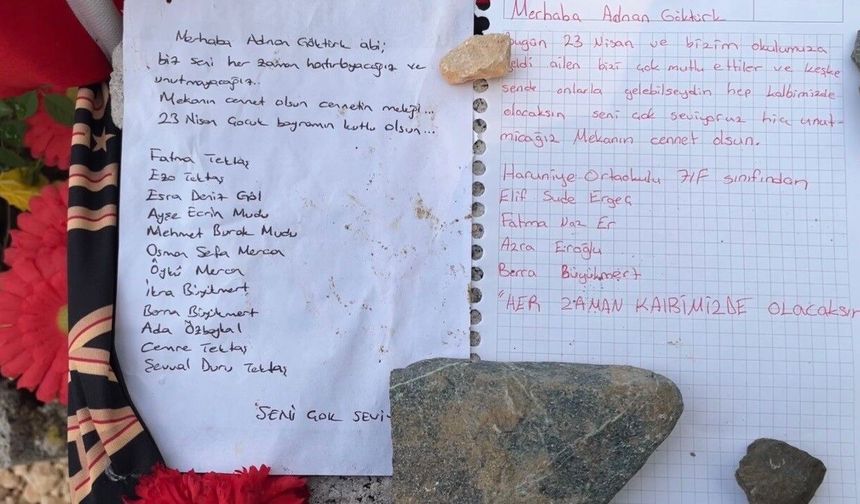 Merhaba Adnan Göktürk abi;
biz seni her zaman hatırlayacağız ve
unutmayacağız..
Mekanın cennet olsun cennetin meleği...
23 Nisan Çocuk bayramın kutlu olsun...
Fatma Tektaş
Ezo Tektaş
Esra Deniz Göl
Ayşe Ecrin Mudu
Mehmet Burak Mudu
Osman Sefa Mercan
Öykü Mercan
İkra Büyükmert
Berra Büyükmert
Ada Özbaykal
Cemre Tektaş
Şevval Duru Tektaş
SENİ ÇOK SEVİ
Merhaba Adnan Göktürk
bugün 23 Nisan ve bizim okulumuza
geldi ailen bizi çok mutlu ettiler ve keşke
sende onlarla gelebilseydin hep kalbimizde
olacaksın seni çok seviyoruz hiç unut-
mıcağız Mekanın cennet olsun.
Haruniye Ortaokulu 7/F sınıfından
Elif Sude Ergeç
Fatma Naz Er
Azra Eroğlu
Berra Büyükmert
"HER ZAMAN KALBİMİZDE OLACAKSIN